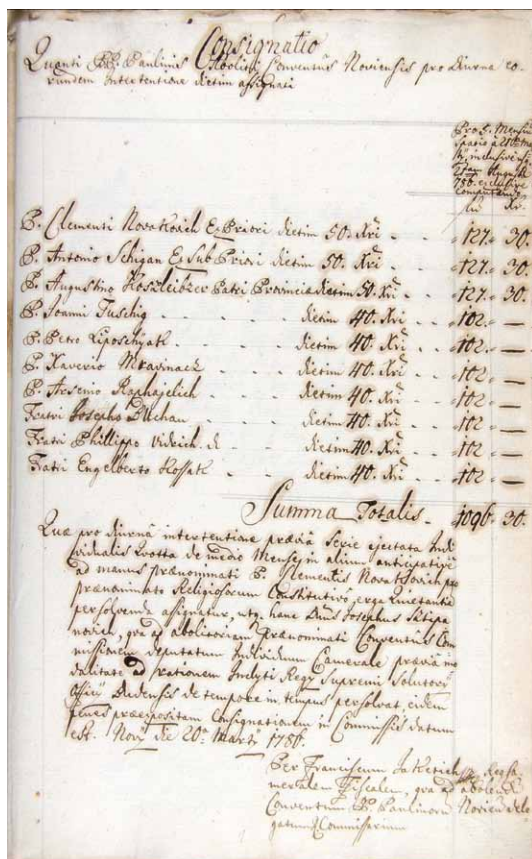 Consignatio
Quanti PP. Paulinis Aboliti Conventus Noviensis pro diurna eo-
rundem Intertentione dietim assignati
Pro 5. Mensium
Spatio a 20a Ma
inclusive
Augusti
786. exclusive
computando
fu Xri
P. Clementi Novakovich Ex Priori dietim 50. Xri - - 127.- 30
P. Antonio Schigan Ex Sub Priori dietim 50. Xri - - 127.- 30
P. Augustino Koszleibzer Patri Provinciæ dietim 50. Xri - - 127.- 30
P. Joanni Tuschig - - - dietim 40. Xri - - 102.- —
P. Petro Liposchyak - - - dietim 40. Xri - - 102.- —
P. Xaverio Mravinacz - - dietim 40. Xri - - 102.- —
P. Arsenio Raphajelich - - dietim 40. Xri - - 102.- —
Fratri Josepho - - dietim 40. Xri - - 102.- —
Fratri Phillippo Vidrich - - dietim 40. Xri - - 102.- —
Fratri Engelberto Kossak - - dietim 40. Xri - - 102.- —
Summa Totalis - 1096. 30
Quæ pro diurna intertentione prævia serie ejectata Indi
vidualis quotta de medio Mensis in alium anticipative
ad manus prænominati P. Clementis Novakovich per
prænominato Religiosorum Constitutivo, erga Quietantia
persolvenda assignetur, utq. hanc Dnus Josephus
novich, qua ad abolitoriam prænominati Conventus Com
missionem deputatum Individuum Camerale prævia mo
dalitate ad rationem Inclyti Regy Supremi Solutory
Officy Budensis de tempore in tempus persolvat, eidem
penes præpositam Consignationem in Commissis datum
est. Novi die 20a Marty 1786.
Per Franciscum Jakctich Reg. Ca
meralem Fiscalem, qua ad abolendi
Conventum PP. Paulinorum Novien dele
gatum Commissarium